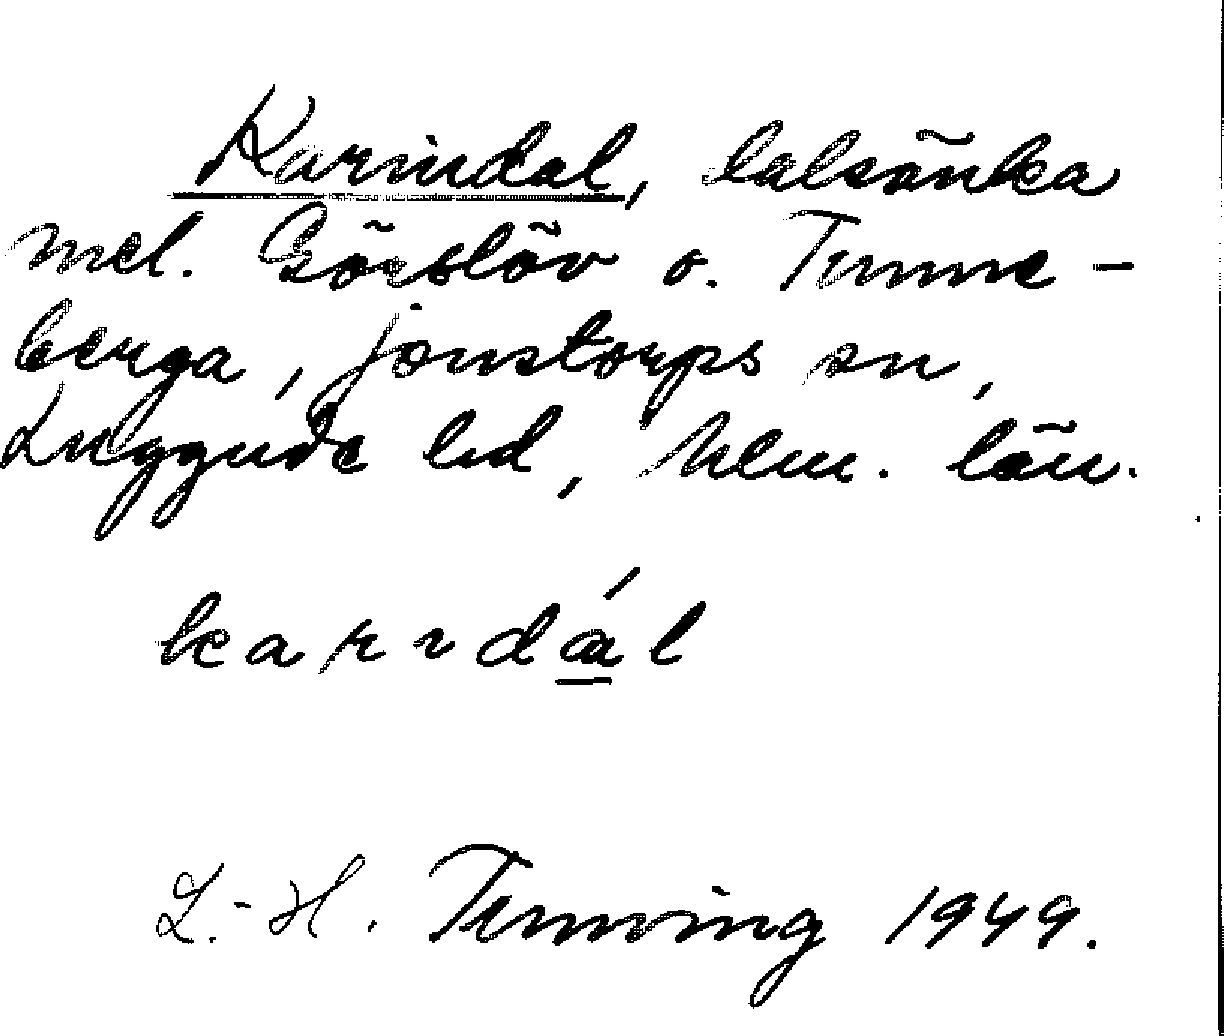 Karindal, dalsänka
mel. Görslöv o. Tunne-
berga, Jonstorps sn,
Luggude hd, Mlm. län.
karɪdál
L.-H. Tunving 1949.